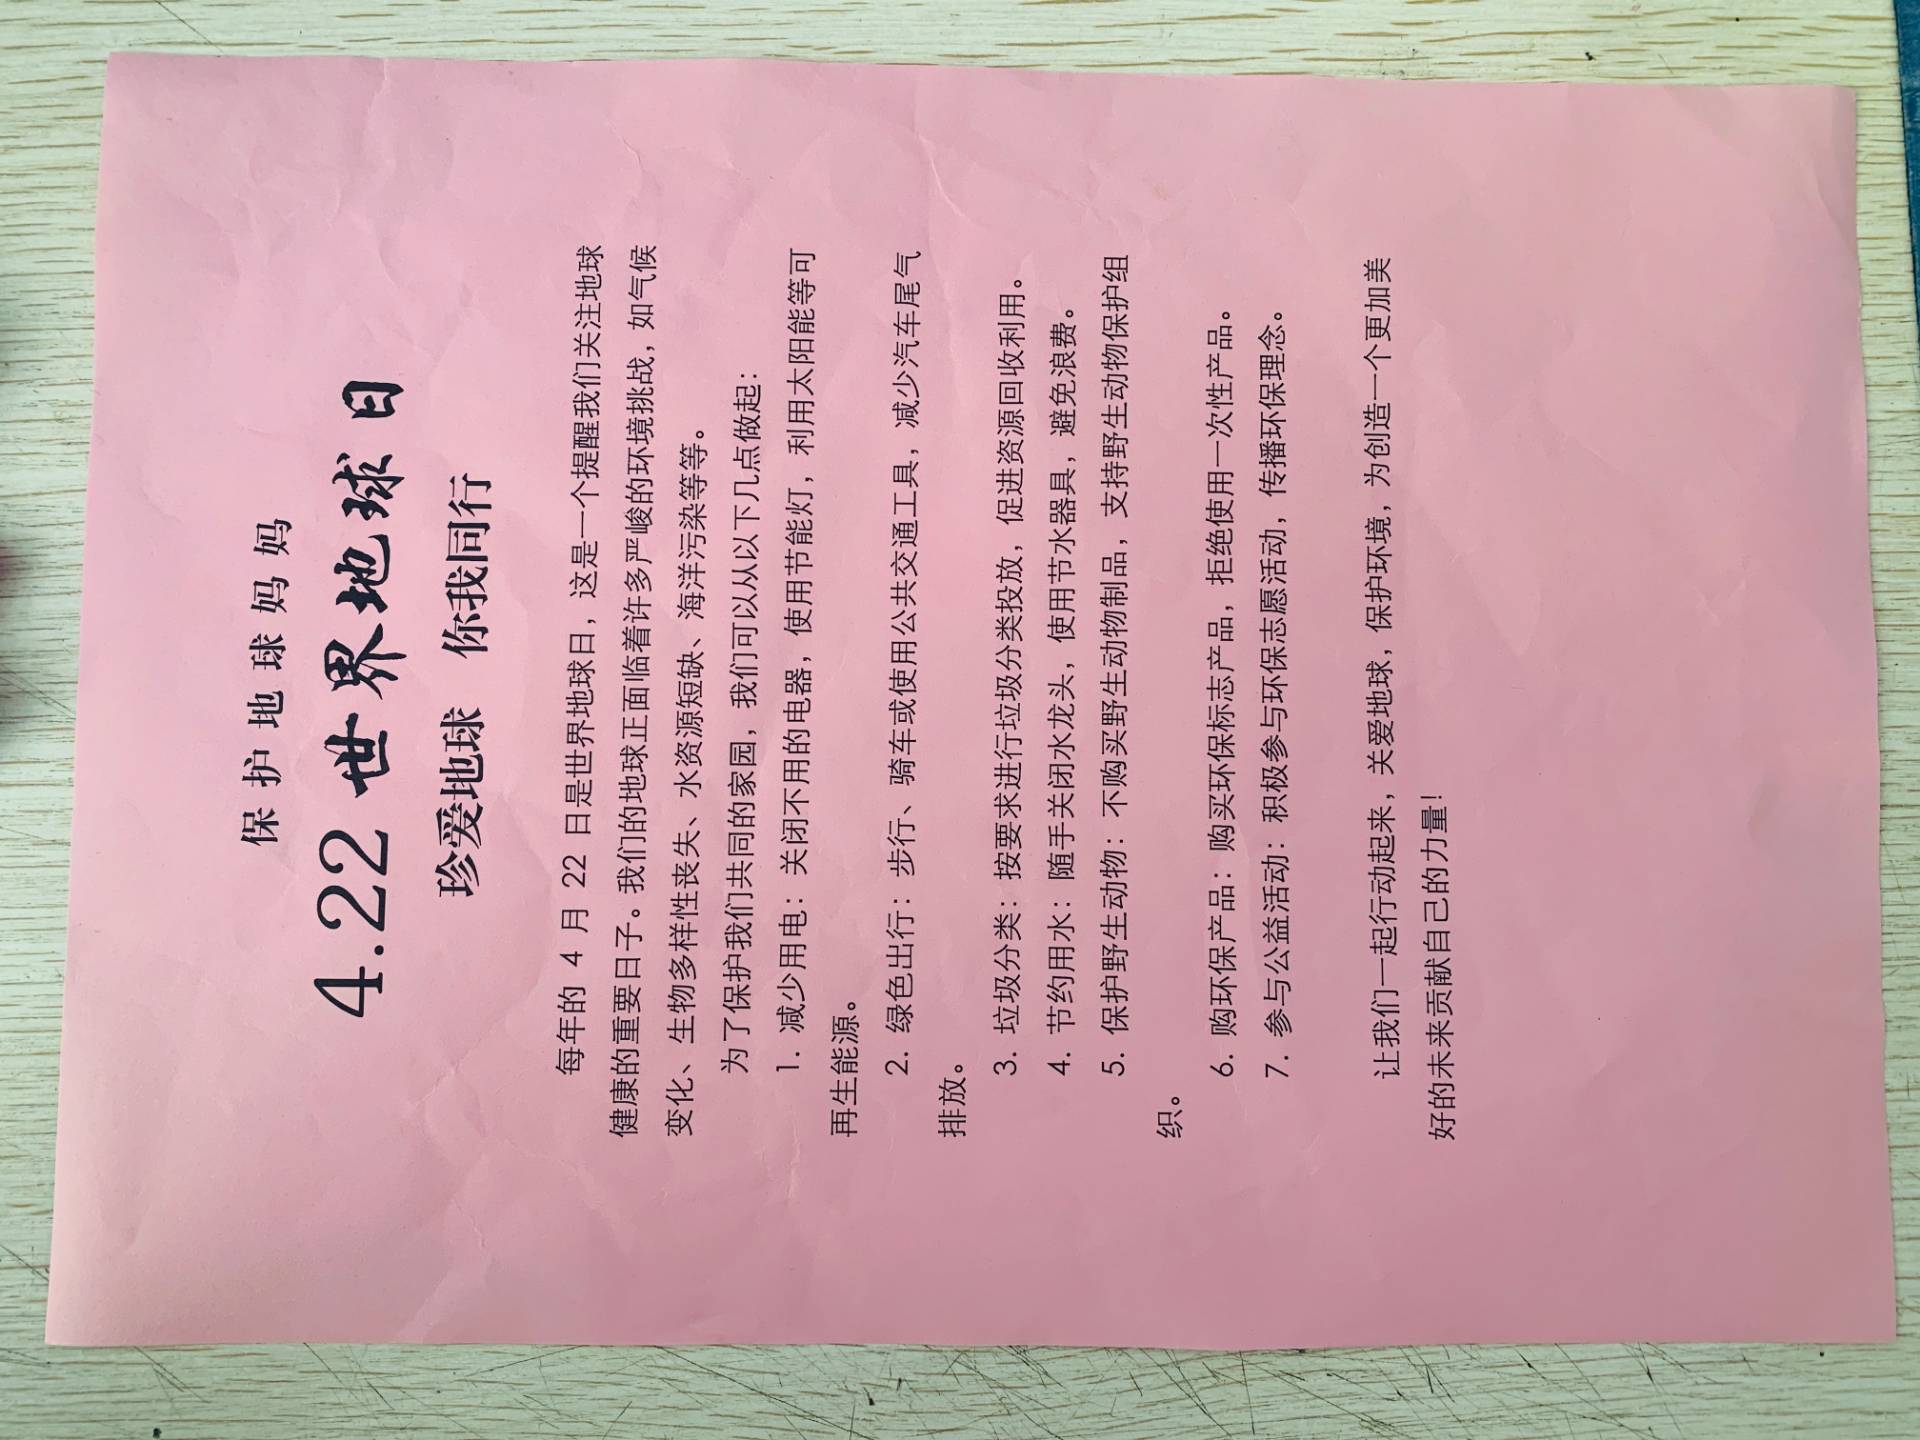 保护地球妈妈
4.22 世界地球日
珍爱地球 你我同行
每年的 4 月 22 日是世界地球日，这是一个提醒我们关注地球
健康的重要日子。我们的地球正面临着许多严峻的环境挑战，如气候
变化、生物多样性丧失、水资源短缺、海洋污染等等。
为了保护我们共同的家园，我们可以从以下几点做起：
1. 减少用电：关闭不用的电器，使用节能灯，利用太阳能等可
再生能源。
2. 绿色出行：步行、骑车或使用公共交通工具，减少汽车尾气
排放。
3. 垃圾分类：按要求进行垃圾分类投放，促进资源回收利用。
4. 节约用水：随手关闭水龙头，使用节水器具，避免浪费。
5. 保护野生动物：不购买野生动物制品，支持野生动物保护组
织。
6. 购环保产品：购买环保标志产品，拒绝使用一次性产品。
7. 参与公益活动：积极参与环保志愿活动，传播环保理念。
让我们一起行动起来，关爱地球，保护环境，为创造一个更加美
好的未来贡献自己的力量！